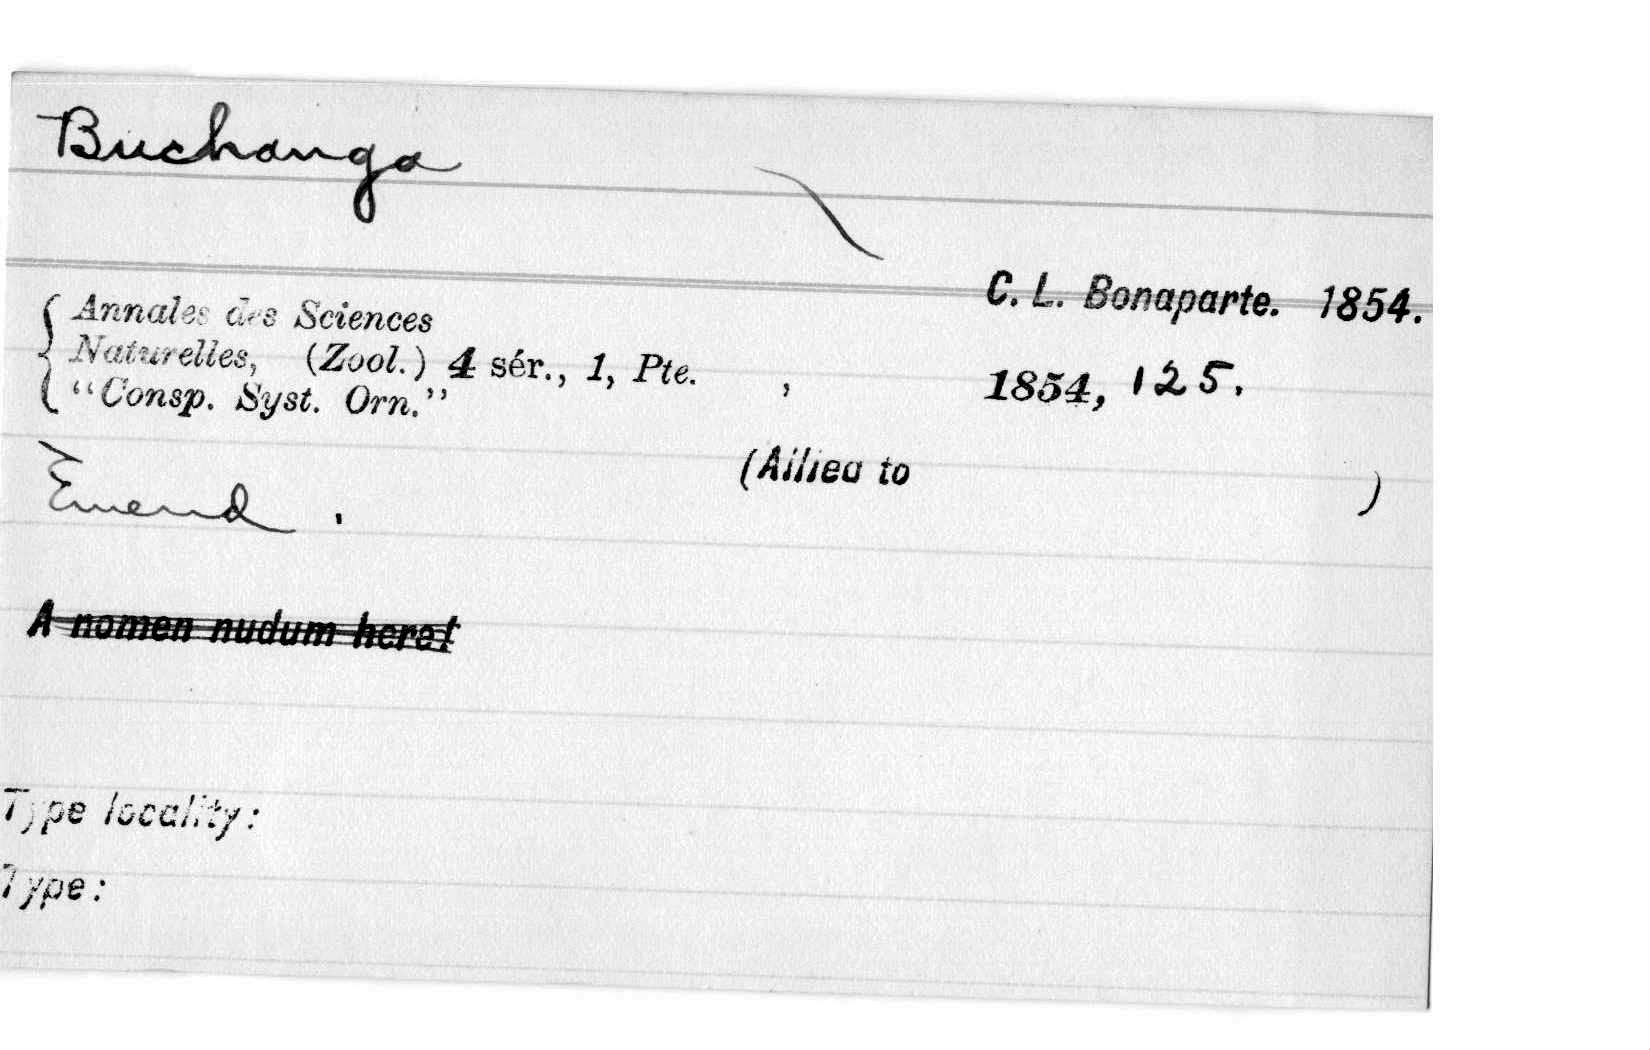 Buchanga
C. L. Bonaparte. 1854.
Annales des Sciences
Naturelles, (Zool.) 4 sér., 1, Pte. , 1854, 125.
"Consp. Syst. Orn."
(Allied to )
Emend.
A nomen nudum here!
Type locality:
Type: